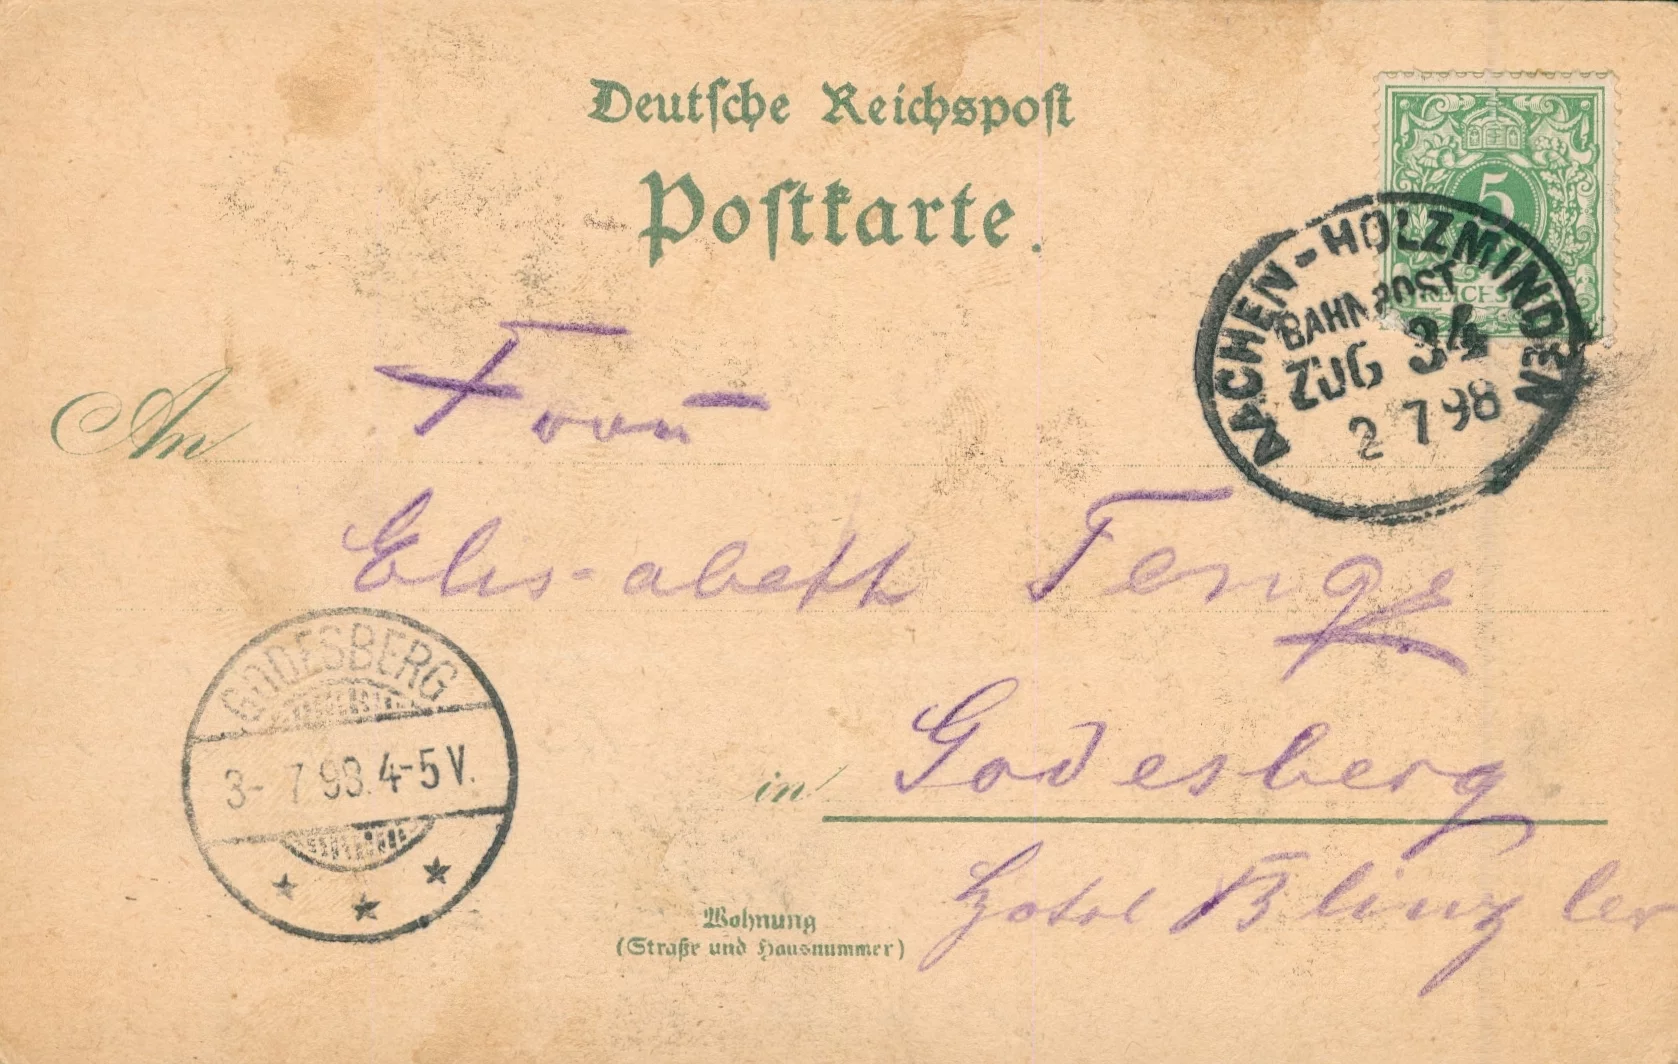 Deutsche Reichspost
Postkarte.
5
REICHSP
AACHEN-HOLZMINDEN
BAHNPOST
ZUG 34
2 7 98
An Frau
Elisabeth Tenge
GODESBERG
3- 7 98. 4-5 V.
in Godesberg
Hotel Blinzler
Wohnung
(Straße und Hausnummer)